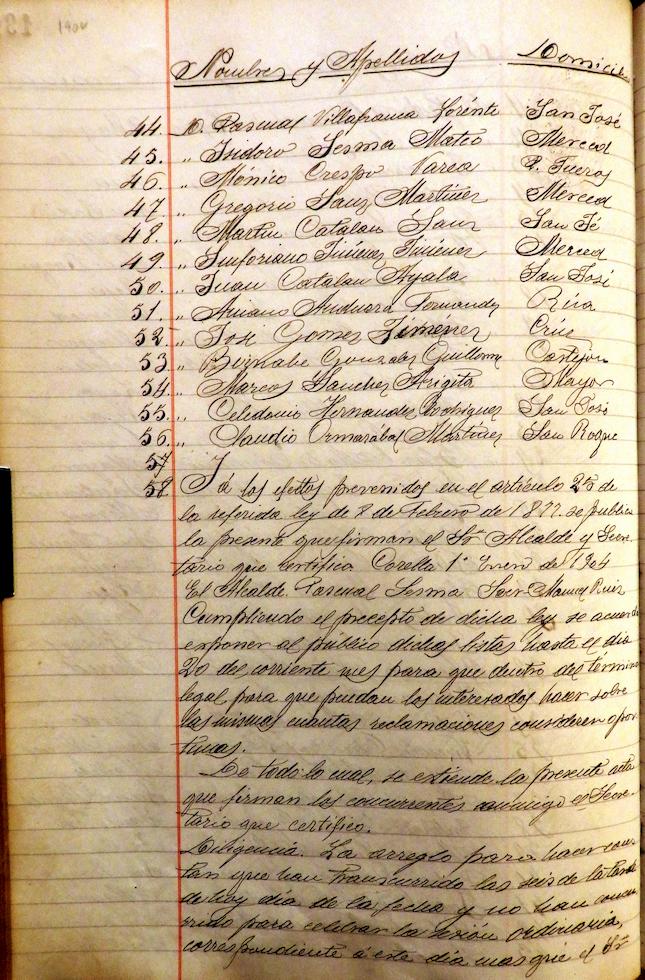 1904
Nombres y Apellidos Domicili
44. D. Pascual Villafranca Lorénte San José
45. „ Isidoro Sesma Mateo Merced
46. „ Mónico Crespo Varea P. Fueros
47. „ Gregorio Sanz Martinez Merced
48. „ Martin Catalan Sanz San José
49. „ Sinforiano Jiménez Jiménez Merced
50. „ Juan Catalan Ayala San José
51. „ Fernandez Rúa
52. „ José Gomez Ximénez Crúz
53. „ Bernabe Gonzalez Guillorme Castejon
54. „ Marcos Sanchez Arigita Mayor
55. „ Celedonio Hernandez Rodriguez San José
56. „ Claudio Ormazábal Martinez San Roque
57.
58. I á los efectos prevenidos en el artículo 25 de
la referida ley de 8 de Febrero de 1877. se publica
la presente que firman el Sr Alcalde y Secre-
tario que certifica Corella 1º Enero de 1904
El Alcalde. Pascual Sesma Ruiz
Cumpliendo el precepto de dicha ley se acuerda
exponer al público dichas listas hasta el dia
20 del corriente mes para que dentro del término
legal para que puedan los interesados hacer sobre
las mismas cuantas reclamaciones consideren opor-
tunas.
De todo lo cual, se extiende la presente acta
que firman los concurrentes conmigo el Secre-
tario que certifico.
Diligencia. La arreglo para hacer cons
tar que han transcurrido las seis de la tarde
de hoy día de la fecha y no han concu
rrido para celebrar la sesión ordinaria,
correspondiente á este dia mas que el Sr